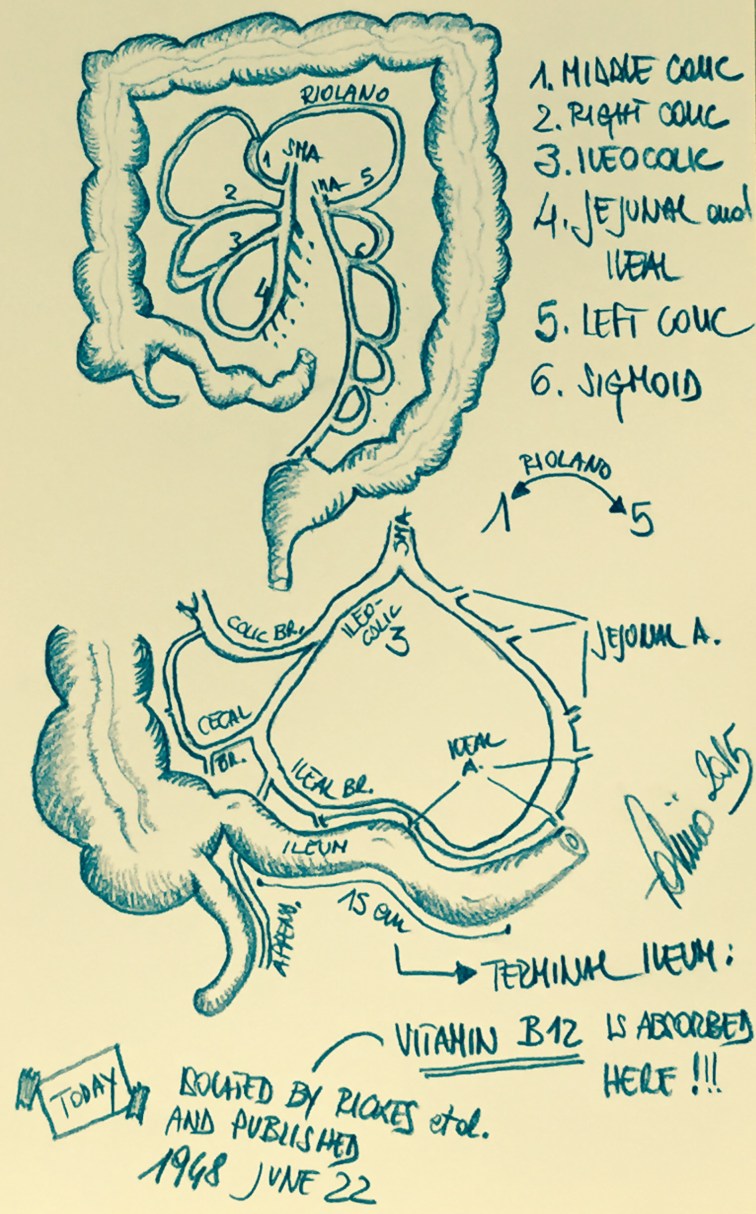 RIOLANO
SMA
1
IMA
5
2
3
6
4
1. MIDDLE COLIC
2. RIGHT COLIC
3. ILEOCOLIC
4. JEJUNAL and
ILEAL
5. LEFT COLIC
6. SIGMOID
RIOLANO
1 5
SMA
COLIC BR.
ILEO-
COLIC
3
JEJUNAL A.
CECAL
BR.
ILEAL
A.
ILEAL BR.
2015
ILEUM
15 cm
APPEND.
TERMINAL ILEUM:
VITAMIN B12 IS ABSORBED
HERE !!!
TODAY
ISOLATED BY RICKES et al.
AND PUBLISHED
1948 JUNE 22